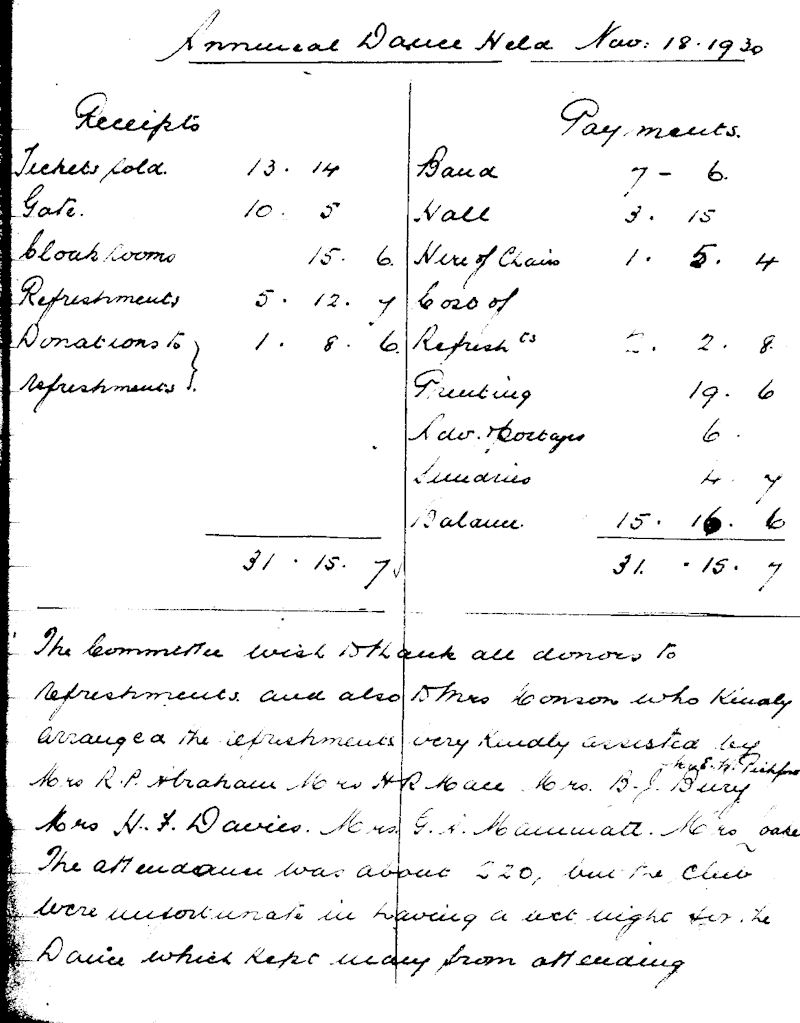 Annual Dance Held Nov: 18. 1930
Receipts
Tickets sold. 13. 14
Gate. 10. 5
Cloak Rooms 15. 6
Refreshments 5. 12. 7
Donations to } 1. 8. 6.
refreshments
31. 15. 7
Payments.
Band 7 - 6.
Hall 3. 15
Hire of Chairs 1. 5. 4
Cost of
Refreshts 2. 2. 8
Printing 19. 6
Adv. & Postages 6.
Sundries 4. 7
Balance. 15. 16. 6
31. 15. 7
The Committee wish to thank all donors to
refreshments. and also to Mrs who kindly
arranged the refreshments very kindly assisted by
Mrs E. H.
Mrs R. P. Abraham Mrs H R Mace Mrs. B. J. Bury
Mrs H. F. Davies. Mrs. G. A. Mammatt. Mrs
The attendance was about 220, but the Club
were unfortunate in having a wet night for the
Dance which kept many from attending